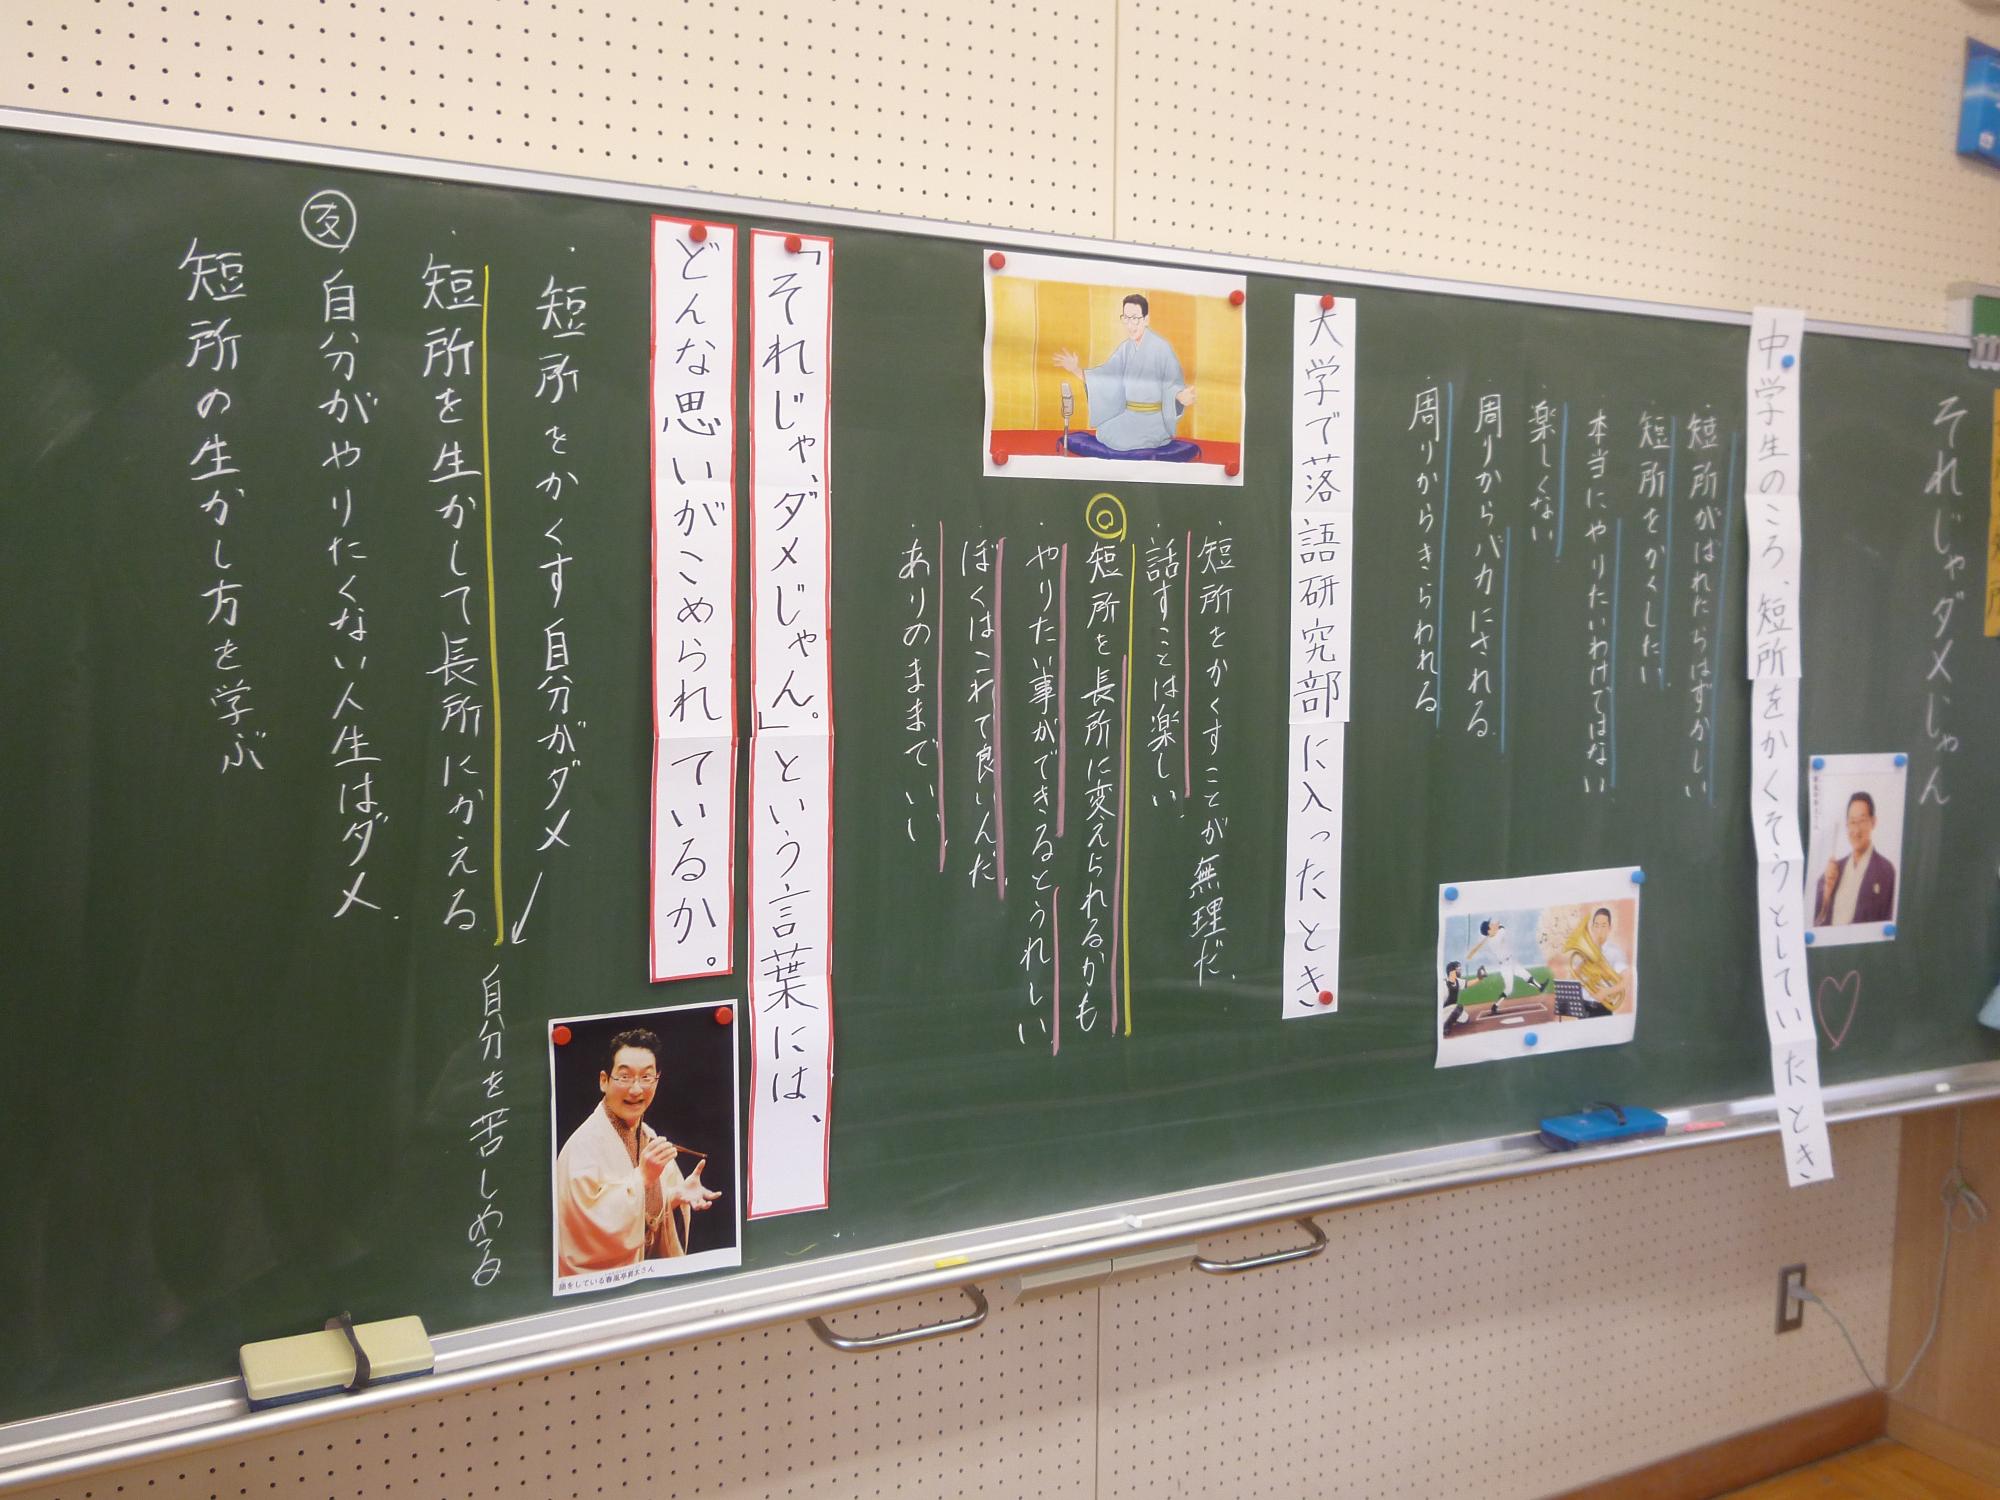 それじゃダメじゃん
中学生のころ、短所をかくそうとしていたとき
・短所がばれたらはずかしい
・短所をかくしたい
・本当にやりたいわけではない
・楽しくない
・周りからバカにされる
・周りからきらわれる
大学で落語研究部に入ったとき
・短所をかくすことが無理だ。
・話すことは楽しい。
◎短所を長所に変えられるかも
・やりたい事ができるとうれしい
・ぼくはこれで良いんだ。
・ありのままでいい
「それじゃ、ダメじゃん。」という言葉には、
どんな思いがこめられているか。
・短所をかくす自分がダメ
自分を苦しめる
・短所を生かして長所にかえる
自分がやりたくない人生はダメ。
短所の生かし方を学ぶ
語をしている春風亭昇太さん